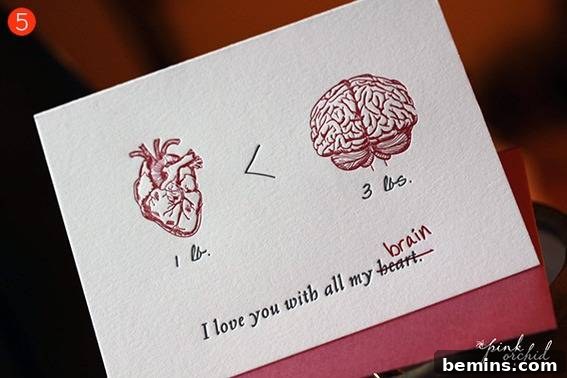 5
<
1 lb.
3 lbs.
brain
I love you with all my heart.
the
pink
orchid
bemins.com